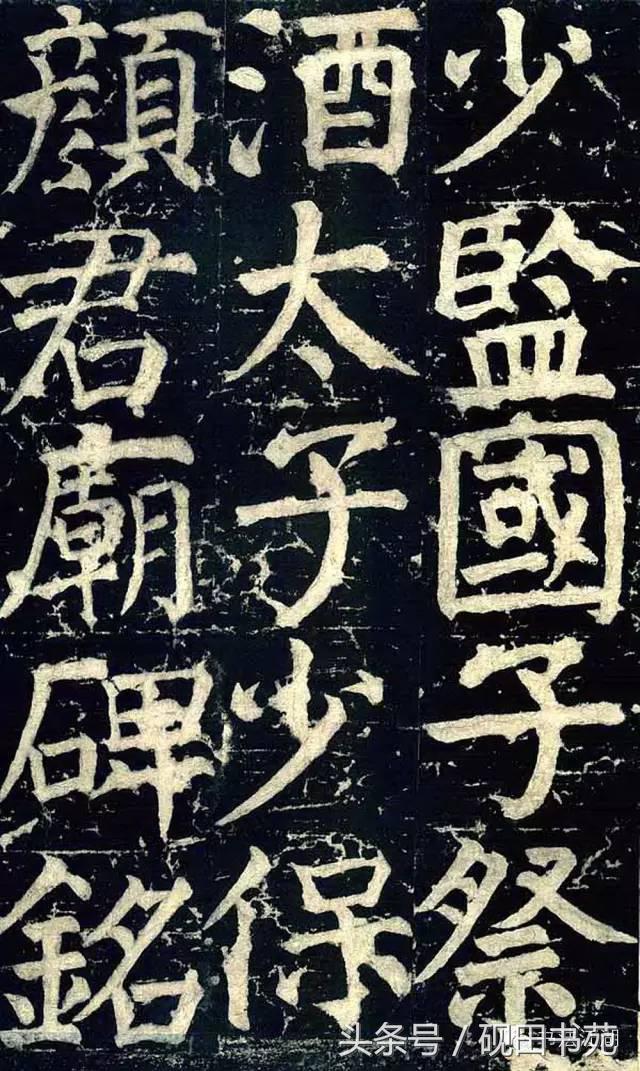 少監國子祭
酒太子少保
顏君廟碑銘
头条号 / 砚田书苑